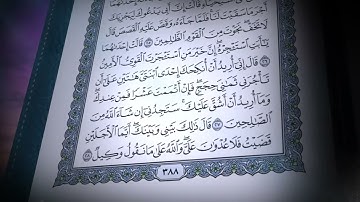 أَجْرَ مَا سَقَيْتَ لَنَا فَلَمَّا جَاءَهُ وَقَصَّ عَلَيْهِ الْقَصَصَ قَالَ
لَا تَخَفْ نَجَوْتَ مِنَ الْقَوْمِ الظَّالِمِينَ ۝ قَالَتْ إِحْدَاهُمَا
يَا أَبَتِ اسْتَأْجِرْهُ إِنَّ خَيْرَ مَنِ اسْتَأْجَرْتَ الْقَوِيُّ الْأَمِينُ
۝ قَالَ إِنِّي أُرِيدُ أَنْ أُنْكِحَكَ إِحْدَى ابْنَتَيَّ هَاتَيْنِ عَلَى أَنْ
تَأْجُرَنِي ثَمَانِيَ حِجَجٍ فَإِنْ أَتْمَمْتَ عَشْرًا فَمِنْ عِنْدِكَ
وَمَا أُرِيدُ أَنْ أَشُقَّ عَلَيْكَ سَتَجِدُنِي إِنْ شَاءَ اللَّهُ مِنَ
الصَّالِحِينَ ٢٧ قَالَ ذَلِكَ بَيْنِي وَبَيْنَكَ أَيَّمَا الْأَجَلَيْنِ
قَضَيْتُ فَلَا عُدْوَانَ عَلَيَّ وَاللَّهُ عَلَى مَا نَقُولُ وَكِيلٌ ٢٨
٣٨٨